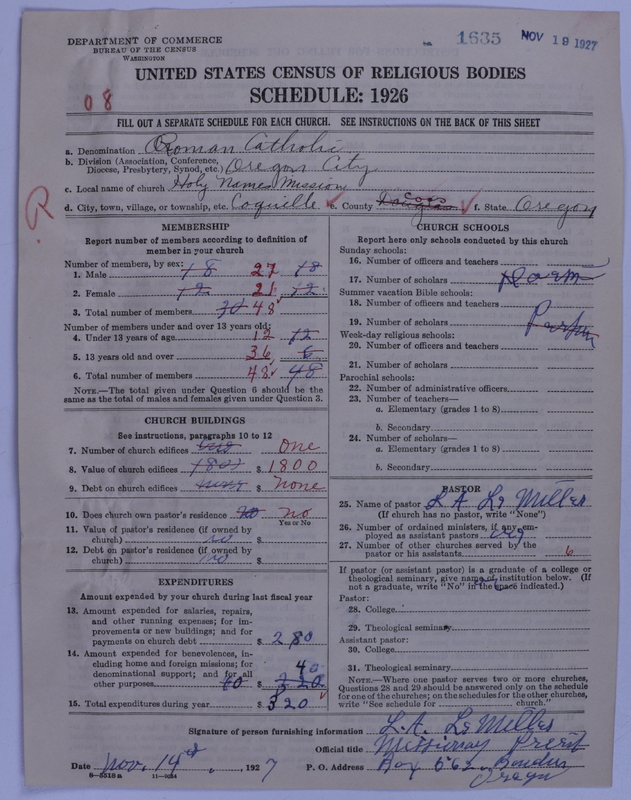 DEPARTMENT OF COMMERCE
BUREAU OF THE CENSUS
WASHINGTON
1635 NOV 19 1927
UNITED STATES CENSUS OF RELIGIOUS BODIES
SCHEDULE: 1926
08
FILL OUT A SEPARATE SCHEDULE FOR EACH CHURCH. SEE INSTRUCTIONS ON THE BACK OF THIS SHEET
a. Denomination Roman Catholic
b. Division (Association, Conference, Diocese, Presbytery, Synod, etc.) Oregon City
c. Local name of church Holy Names Mission
d. City, town, village, or township, etc. Coquille e. County Douglas Coos f. State Oregon
R
MEMBERSHIP
Report number of members according to definition of
member in your church
Number of members, by sex:
1. Male 18 27 18
2. Female 12 21 12
3. Total number of members 30 48
Number of members under and over 13 years old:
4. Under 13 years of age 12 12
5. 13 years old and over 36 6
6. Total number of members 48 48
NOTE.—The total given under Question 6 should be
same as the total of males and females given under Question 3.
CHURCH BUILDINGS
See instructions, paragraphs 10 to 12
7. Number of church edifices one
8. Value of church edifices 1800 $ 1800
9. Debt on church edifices $ none
10. Does church own pastor's residence no no
Yes or No
11. Value of pastor's residence (if owned by
church) no $
12. Debt on pastor's residence (if owned by
church) no $
EXPENDITURES
Amount expended by your church during last fiscal year
13. Amount expended for salaries, repairs,
and other running expenses; for im-
provements or new buildings; and for
payments on church debt $ 280
14. Amount expended for benevolences, in-
cluding home and foreign missions; for
denominational support; and for all 40
other purposes 60 $ 320
15. Total expenditures during year $ 320
CHURCH SCHOOLS
Report here only schools conducted by this church
Sunday schools:
16. Number of officers and teachers
17. Number of scholars
Summer vacation Bible schools:
18. Number of officers and teachers
19. Number of scholars
Week-day religious schools:
20. Number of officers and teachers
21. Number of scholars
Parochial schools:
22. Number of administrative officers
23. Number of teachers—
a. Elementary (grades 1 to 8)
b. Secondary
24. Number of scholars—
a. Elementary (grades 1 to 8)
b. Secondary
PASTOR
25. Name of pastor L A Le Miller
(If church has no pastor, write "None")
26. Number of ordained ministers, if any, em-
ployed as assistant pastors
27. Number of other churches served by the
pastor or his assistants 6
If pastor (or assistant pastor) is a graduate of a college or
theological seminary, give name of institution below. (If
not a graduate, write "No" in the space indicated.)
Pastor:
28. College
29. Theological seminary
Assistant pastor:
30. College
31. Theological seminary
NOTE.—Where one pastor serves two or more churches,
Questions 28 and 29 should be answered only on the schedule
for one of the churches; on the schedules for the other churches,
write "See schedule for church."
Signature of person furnishing information L.A. Le Miller
Official title Missionary Priest
Date Nov. 14th, 1927 P. O. Address Box 562, Bandon
8-5518 a 11-9034 Oregon